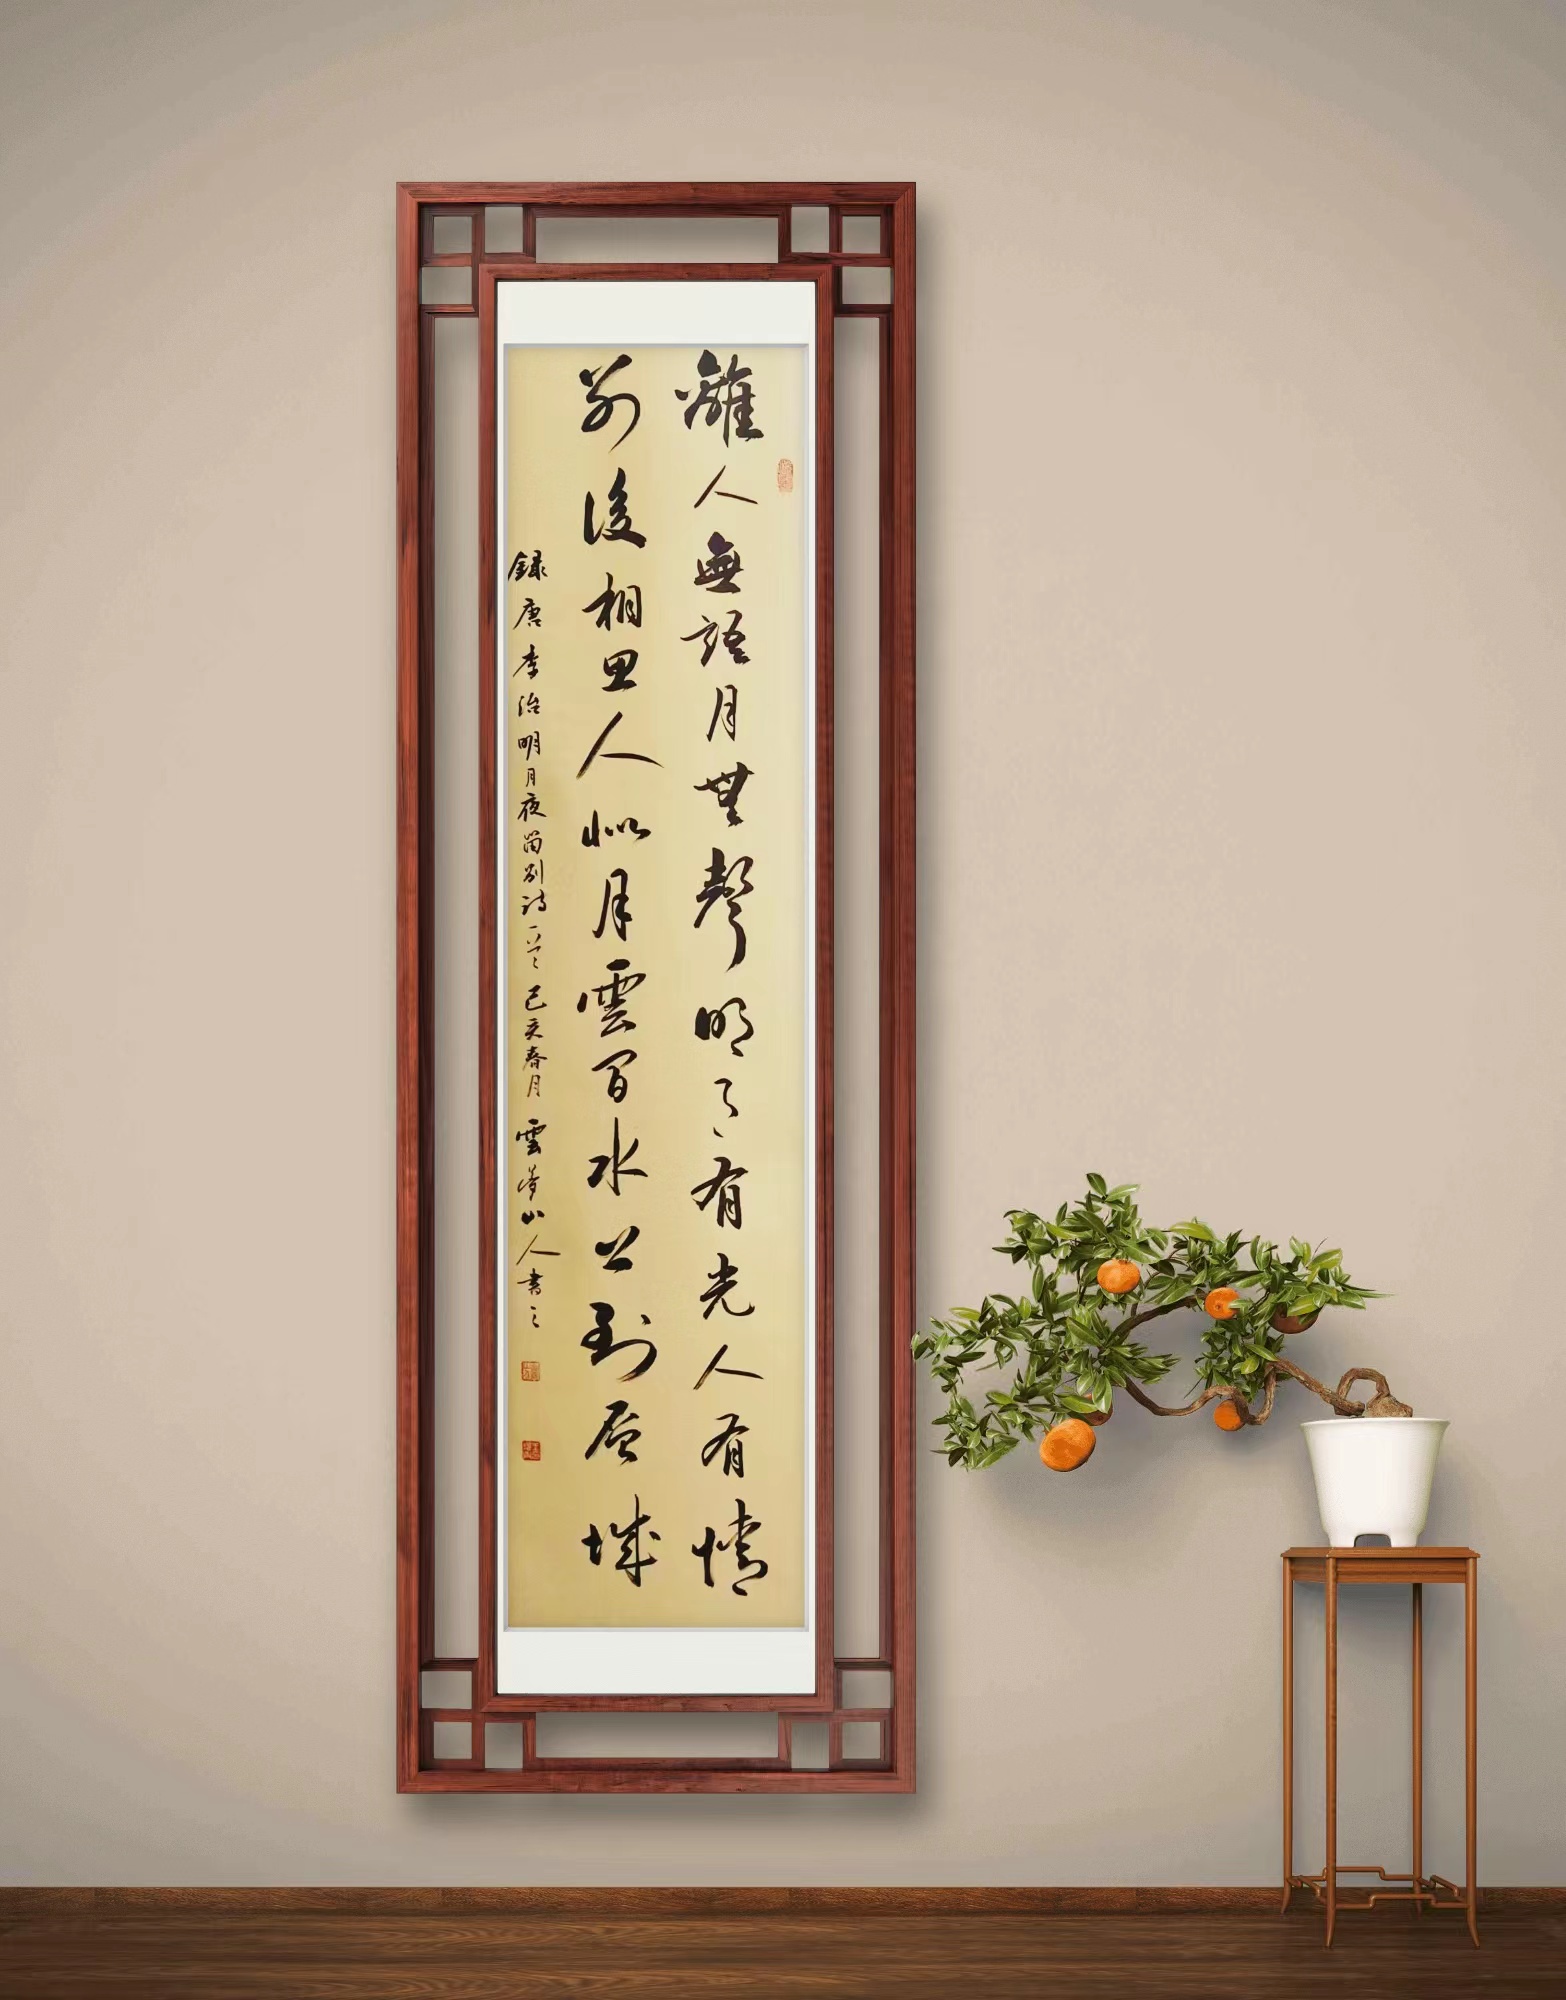 離人無語月無聲明〻有光人有情
別後相思人似月雲間水上到層城
録唐李治明月夜留別詩一首己亥春月雲夢山人書之